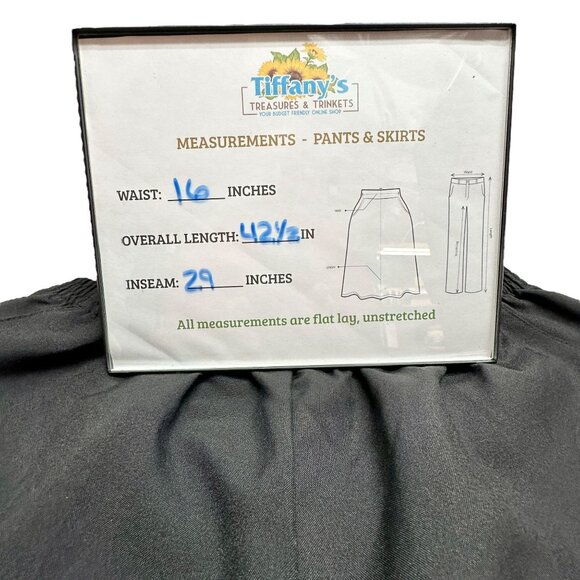 Tiffany's
TREASURES & TRINKETS
YOUR BUDGET FRIENDLY ONLINE SHOP
MEASUREMENTS - PANTS & SKIRTS
WAIST: 16 INCHES
OVERALL LENGTH: 42 1/2 IN
INSEAM: 29 INCHES
Waist
Length
All measurements are flat lay, unstretched